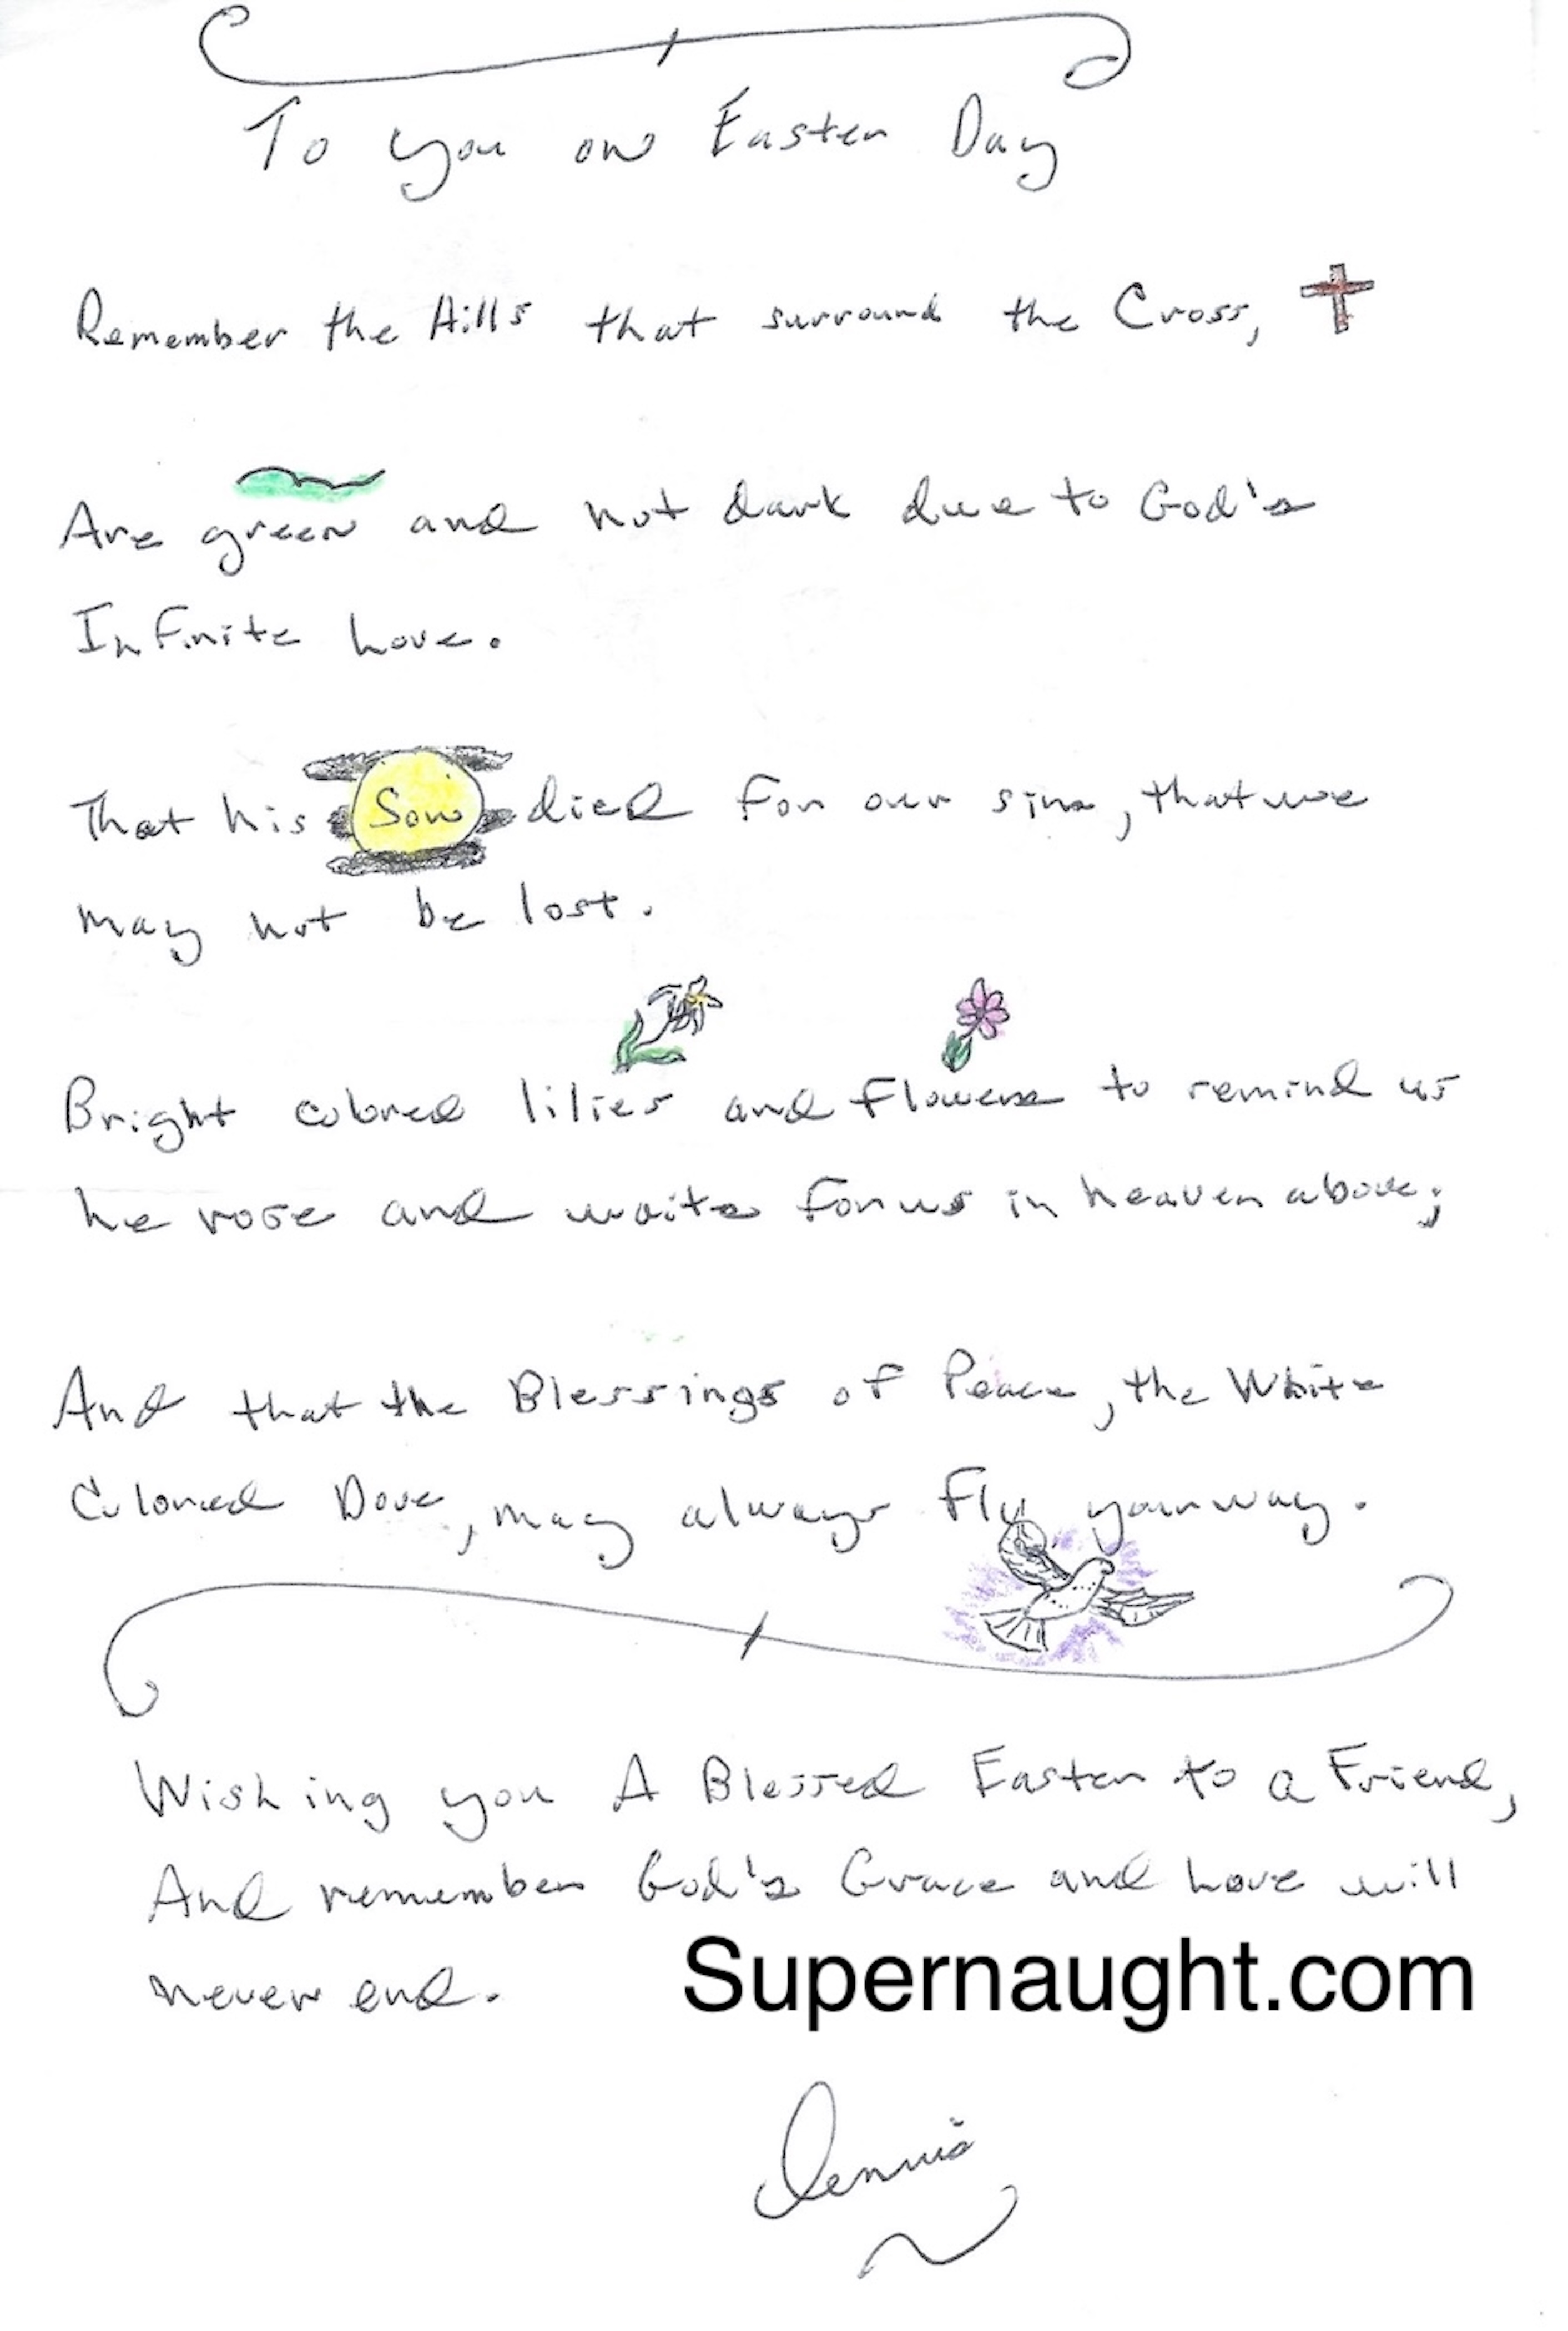 To you on Easter Day
Remember the Hills that surround the Cross,
Are green and not dark due to God's
Infinite Love.
That his Son died for our sins, that we
may not be lost.
Bright colored lilies and Flowers to remind us
he rose and waits for us in heaven above;
And that the Blessings of Peace, the White
Colored Dove, may always Fly your way.
Wishing you A Blessed Easter to a Friend,
And remember God's Grace and Love will
never end.
Supernaught.com
Dennis